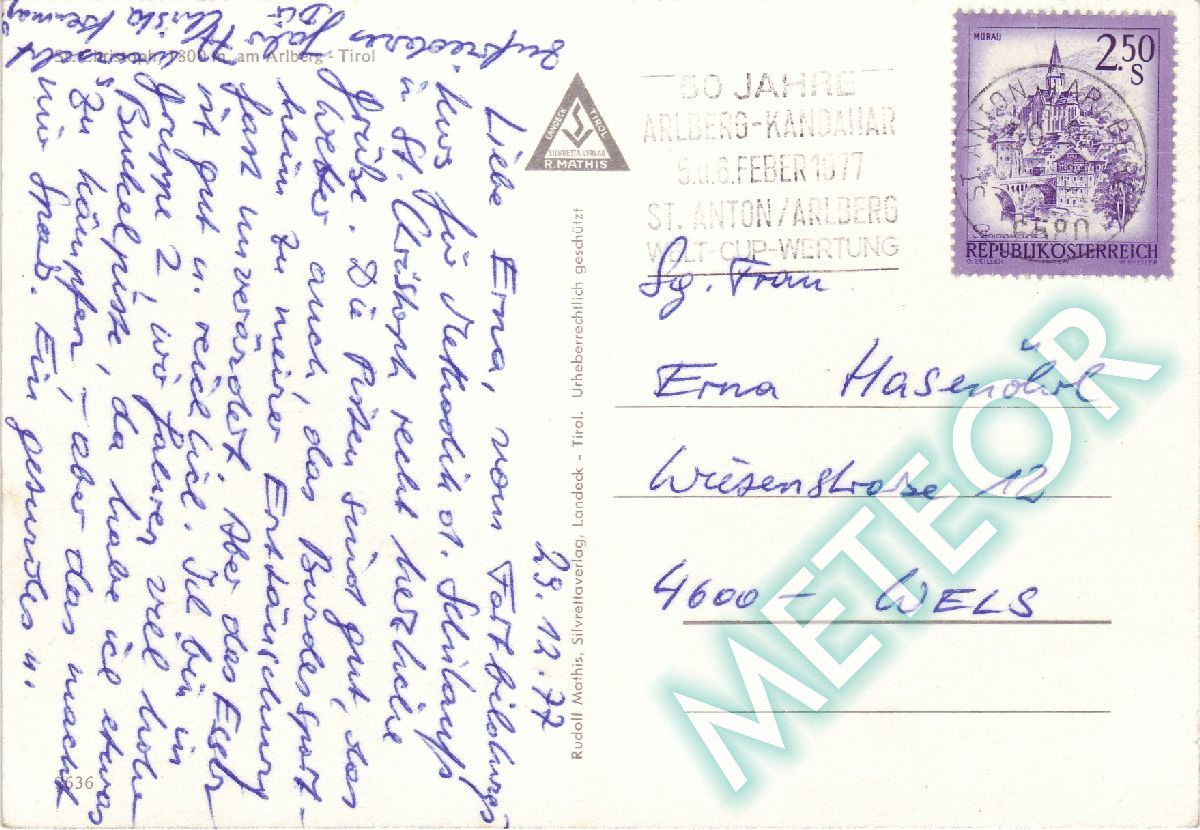 St. Christoph, 1800 m, am Arlberg - Tirol
LANDECK TIROL
SILVRETTAVERLAG
R. MATHIS
50 JAHRE
ARLBERG-KANDAHAR
5.u.6.FEBER 1977
ST. ANTON/ARLBERG
WELT-CUP-WERTUNG
MURAU
2.50
S
REPUBLIK ÖSTERREICH
ST. ANTON ARLBERG
6580
29.12.77
Liebe Erna, vom Fortbildungs-
kurs für Methodik d. Schilaufs
in St. Christoph recht herzliche
Grüße. Die Pisten sind gut, das
Wetter auch, das Bundessport-
heim zu meiner Enttäuschung
fast unverändert. Aber das Essen
ist gut u. reichlich. Ich bin in
Gruppe 2, wir fahren viel hohe
Buckelpiste, da habe ich etwas
zu kämpfen, - aber das macht
mir Spaß. Ein gesundes u.
zufriedenes Jahr
Dir
Christa
Sg. Frau
Erna Hasenöhrl
Wiesenstraße 12
4600 - WELS
Rudolf Mathis, Silvrettaverlag, Landeck - Tirol. Urheberrechtlich geschützt
636
METEOR